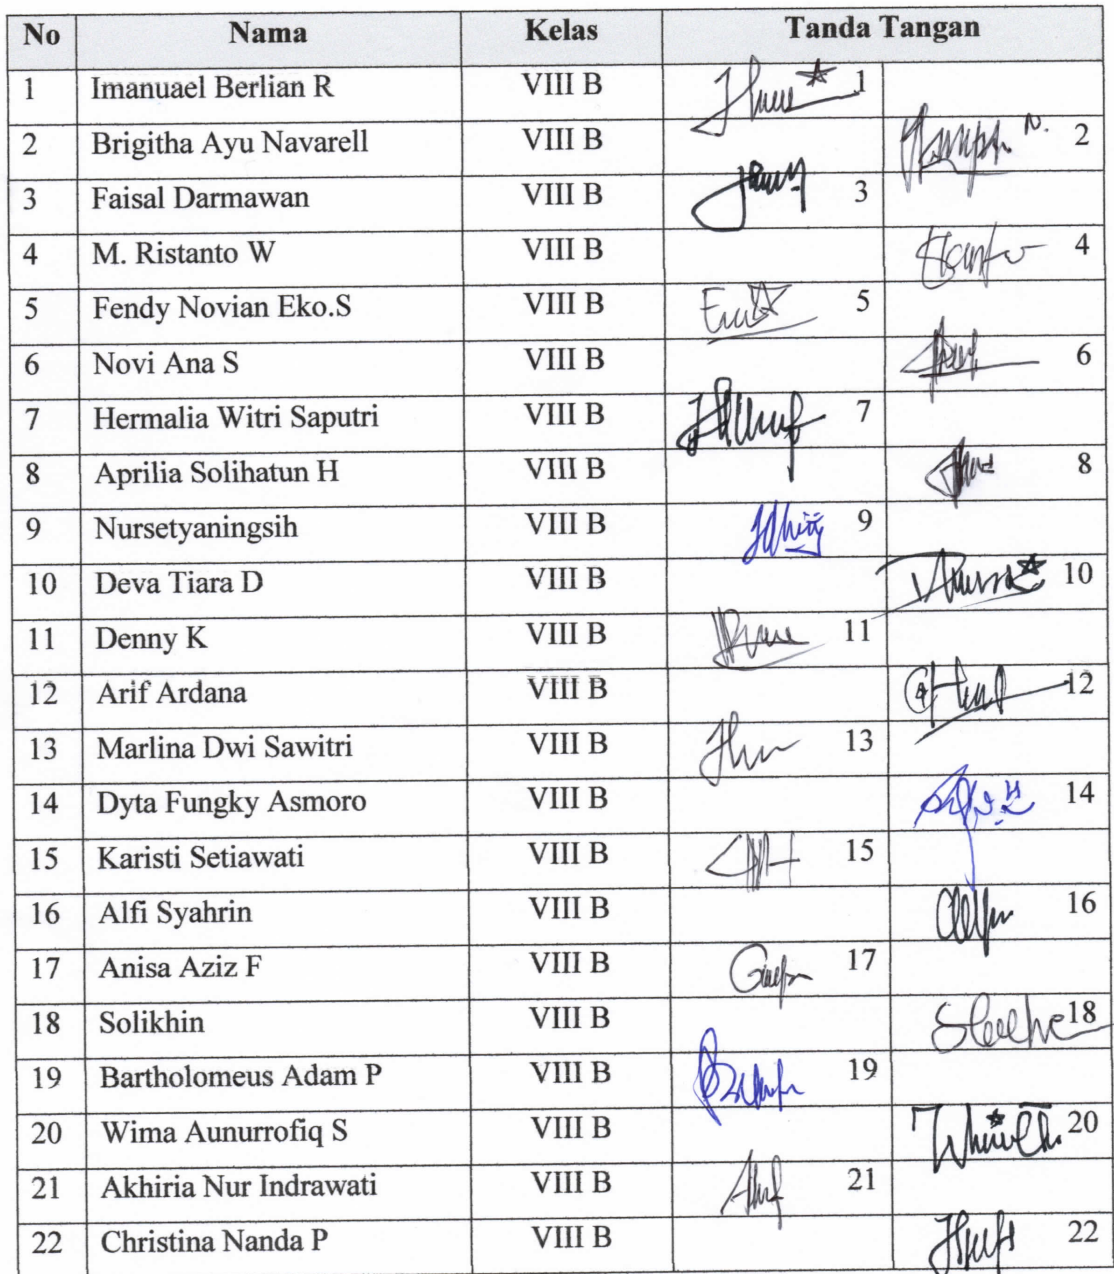 No Nama Kelas Tanda Tangan
1 Imanuael Berlian R VIII B 1
2 Brigitha Ayu Navarell VIII B 2
3 Faisal Darmawan VIII B 3
4 M. Ristanto W VIII B 4
5 Fendy Novian Eko.S VIII B 5
6 Novi Ana S VIII B 6
7 Hermalia Witri Saputri VIII B 7
8 Aprilia Solihatun H VIII B 8
9 Nursetyaningsih VIII B 9
10 Deva Tiara D VIII B 10
11 Denny K VIII B 11
12 Arif Ardana VIII B 12
13 Marlina Dwi Sawitri VIII B 13
14 Dyta Fungky Asmoro VIII B 14
15 Karisti Setiawati VIII B 15
16 Alfi Syahrin VIII B 16
17 Anisa Aziz F VIII B 17
18 Solikhin VIII B 18
19 Bartholomeus Adam P VIII B 19
20 Wima Aunurrofiq S VIII B 20
21 Akhiria Nur Indrawati VIII B 21
22 Christina Nanda P VIII B 22